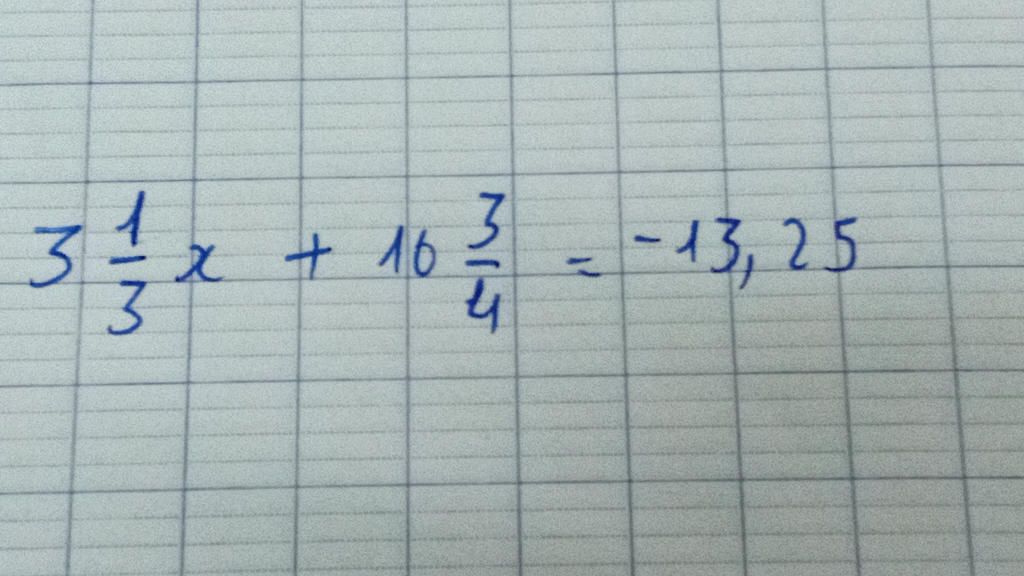 3 1/3 x + 16 3/4 = -13,25